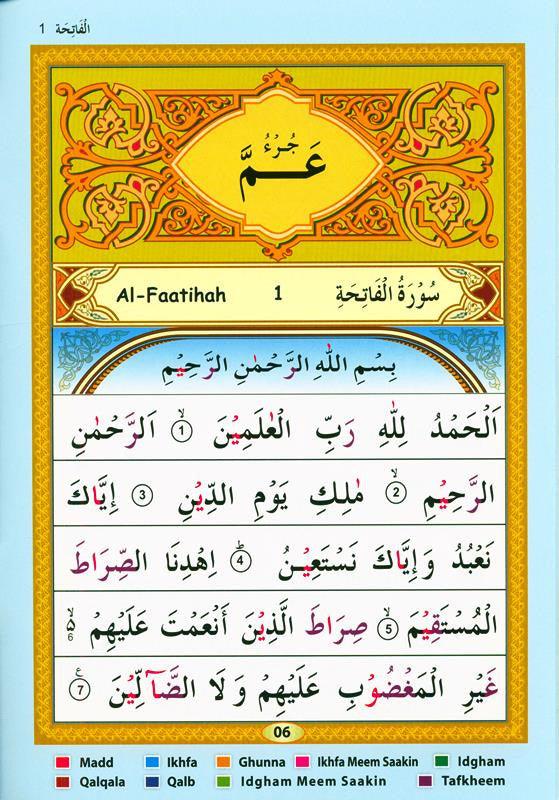 الْفَاتِحَة 1
جُزْءُ
عَمَّ
Al-Faatihah 1 سُوْرَةُ الْفَاتِحَةِ
بِسْمِ اللّٰهِ الرَّحْمٰنِ الرَّحِيْمِ
اَلْحَمْدُ لِلّٰهِ رَبِّ الْعٰلَمِيْنَ ۙ ① اَلرَّحْمٰنِ
الرَّحِيْمِ ۙ ② مٰلِكِ يَوْمِ الدِّيْنِ ③ إِيَّاكَ
نَعْبُدُ وَإِيَّاكَ نَسْتَعِيْنُ ؕ ④ اِهْدِنَا الصِّرَاطَ
الْمُسْتَقِيْمَ ۙ ⑤ صِرَاطَ الَّذِيْنَ أَنْعَمْتَ عَلَيْهِمْ ۙ۵ 6
غَيْرِ الْمَغْضُوْبِ عَلَيْهِمْ وَلَا الضَّآلِّيْنَ ⑦ ع
06
Madd Ikhfa Ghunna Ikhfa Meem Saakin Idgham
Qalqala Qalb Idgham Meem Saakin Tafkheem